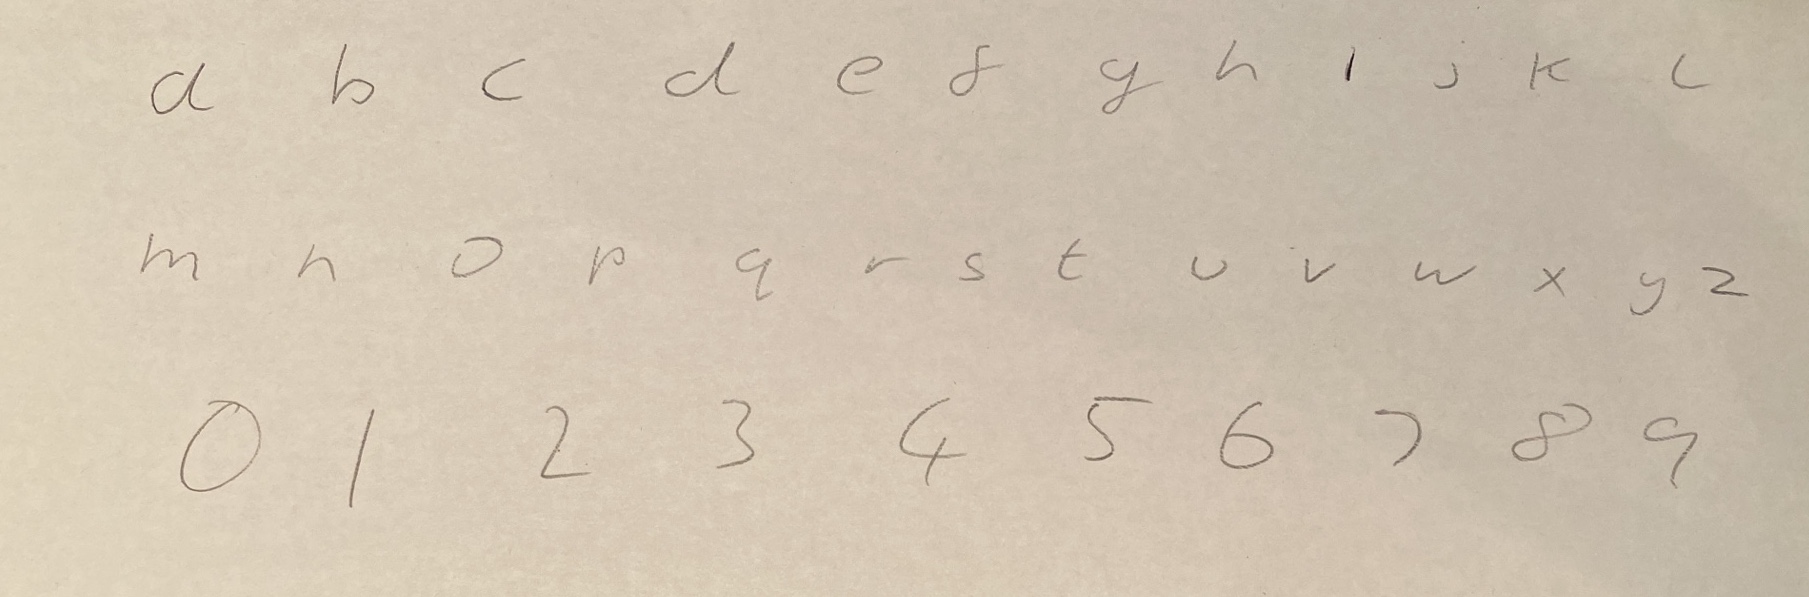 a b c d e f g h i j k l
m n o p q r s t u v w x y z
0 1 2 3 4 5 6 7 8 9